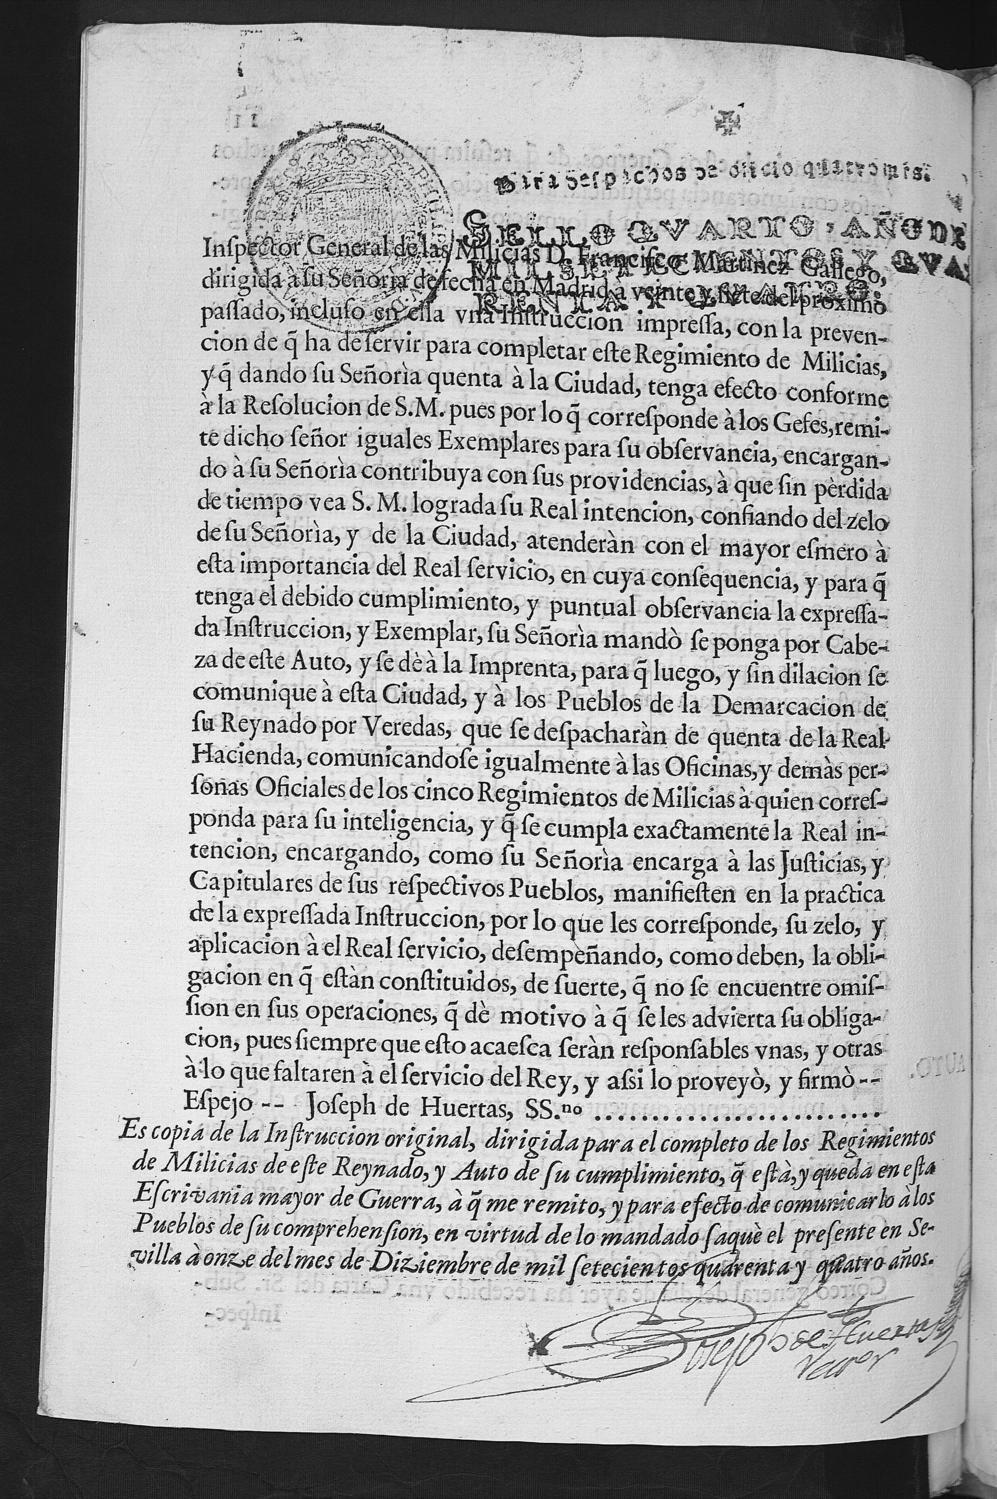 Para despachos de oficio quatro mrs.
SELLO QVARTO, AÑO DE
MIL SETECIENTOS Y QVA-
RENTA Y QVATRO.
Inſpector General de las Milicias D. Franciſco Martinez Gallego,
dirigida à ſu Señorìa de fecha en Madrid à veinte y ſiete del proximo
paſſado, incluſo en ella vna Inſtruccion impreſſa, con la preven-
cion de q̃ ha de ſervir para completar eſte Regimiento de Milicias,
y q̃ dando ſu Señorìa quenta à la Ciudad, tenga efecto conforme
à la Reſolucion de S.M. pues por lo q̃ correſponde à los Gefes, remi-
te dicho ſeñor iguales Exemplares para ſu obſervancia, encargan-
do à ſu Señorìa contribuya con ſus providencias, à que ſin pèrdida
de tiempo vea S. M. lograda ſu Real intencion, confiando del zelo
de ſu Señorìa, y de la Ciudad, atenderàn con el mayor eſmero à
eſta importancia del Real ſervicio, en cuya conſequencia, y para q̃
tenga el debido cumplimiento, y puntual obſervancia la expreſſa-
da Inſtruccion, y Exemplar, ſu Señorìa mandò ſe ponga por Cabe-
za de eſte Auto, y ſe dè à la Imprenta, para q̃ luego, y ſin dilacion ſe
comunique à eſta Ciudad, y à los Pueblos de la Demarcacion de
ſu Reynado por Veredas, que ſe deſpacharàn de quenta de la Real
Hacienda, comunicandoſe igualmente à las Oficinas, y demàs per-
ſonas Oficiales de los cinco Regimientos de Milicias à quien correſ-
ponda para ſu inteligencia, y q̃ ſe cumpla exactamente la Real in-
tencion, encargando, como ſu Señorìa encarga à las Juſticias, y
Capitulares de ſus reſpectivos Pueblos, manifieſten en la practica
de la expreſſada Inſtruccion, por lo que les correſponde, ſu zelo, y
aplicacion à el Real ſervicio, deſempeñando, como deben, la obli-
gacion en q̃ eſtàn conſtituidos, de ſuerte, q̃ no ſe encuentre omiſ-
ſion en ſus operaciones, q̃ dè motivo à q̃ ſe les advierta ſu obliga-
cion, pues ſiempre que eſto acaeſca ſeràn reſponſables vnas, y otras
à lo que faltaren à el ſervicio del Rey, y aſsi lo proveyò, y firmò --
Eſpejo -- Joſeph de Huertas, SS.ⁿᵒ ........................
Es copia de la Inſtruccion original, dirigida para el completo de los Regimientos
de Milicias de eſte Reynado, y Auto de ſu cumplimiento, q̃ eſtà, y queda en eſta
Eſcrivania mayor de Guerra, à q̃ me remito, y para efecto de comunicarlo à los
Pueblos de ſu comprehenſion, en virtud de lo mandado ſaquè el preſente en Se-
villa à onze del mes de Diziembre de mil ſetecientos quarenta y quatro años.
Joseph de Huertas